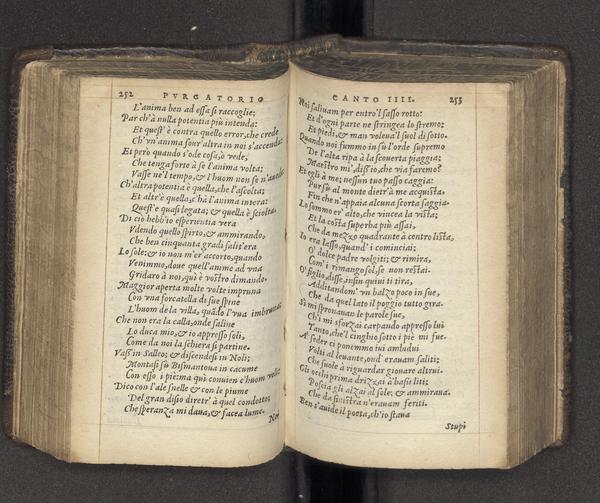 252 PVRGATORIO
L'anima ben ad essa si raccoglie;
Par ch'à nulla potentia più intenda:
Et quest'è contra quello error, che crede
Ch'vn'anima sour'altra in noi s'accenda:
Et però quando s'ode cosa, ò vede,
Che tenga forte à se l'anima volta;
Vasse ne'l tempo, & l'huom non se n'auede:
Ch'altra potentia è quella, che l'ascolta;
Et altr'è quella, c'hà l'anima intera:
Quest'è quasi legata; & quella è sciolta.
Di ciò hebb'io esperientia vera
Vdendo quello spirto, & ammirando,
Che ben cinquanta gradi salit'era
Lo sole: & io non m'er'accorto, quando
Venimmo, doue quell'anime ad vna
Gridaro à noi, quì è vostro dimando.
Maggior aperta molte volte impruna
Con vna forcatella di sue spine
L'huom de la villa, quado l'vua imbruna;
Che non era la calla, onde saline
Lo duca mio, & io appresso soli,
Come da noi la schiera si partine.
Vassi in Sanleo; & discendesi in Noli;
Montasi sù Bismantoua in cacume
Con esso i piè: ma quì conuien c'huom voli:
Dico con l'ale snelle & con le piume
Del gran disio diretr'à quel condotto;
Che speranza mi daua, & facea lume.
Noi
CANTO IIII. 253
Noi saliuam per entro'l sasso rotto:
Et d'ogni parte ne stringea lo stremo;
Et piedi, & man volea'l suol di sotto.
Quando noi fummo in su l'orde supremo
De l'alta ripa à la scouerta piaggia;
Maestro mi', diss'io, che via faremo?
Et egli à me; nessun tuo passo caggia:
Pur sù al monte dietr'à me acquista,
Fin che n'appaia alcuna scorta saggia.
Lo sommo er'alto, che vincea la vista;
Et la costa superba più assai,
Che da mezzo quadrante à centro lista,
Io era lasso, quand'i cominciai;
O' dolce padre volgiti; & rimira,
Com'i rimango sol, se non restai.
O' figlio, disse, insin quiui ti tira,
Additandom' vn balzo poco in sue,
Che da quel lato il poggio tutto gira.
Sì mi spronauan le parole sue,
Ch'i mi sforzai carpando appresso lui
Tanto, che'l cinghio sotto i piè mi fue.
A' seder ci ponemmo iui ambidui
Volti al leuante, ond'erauam saliti;
Che suole à riguardar giouare altrui.
Gli occhi prima drizzai à bassi liti;
Poscia gli alzai al sole; & ammiraua,
Che da sinistra n'erauam feriti.
Ben s'auide il poeta, ch'io staua
Stupi